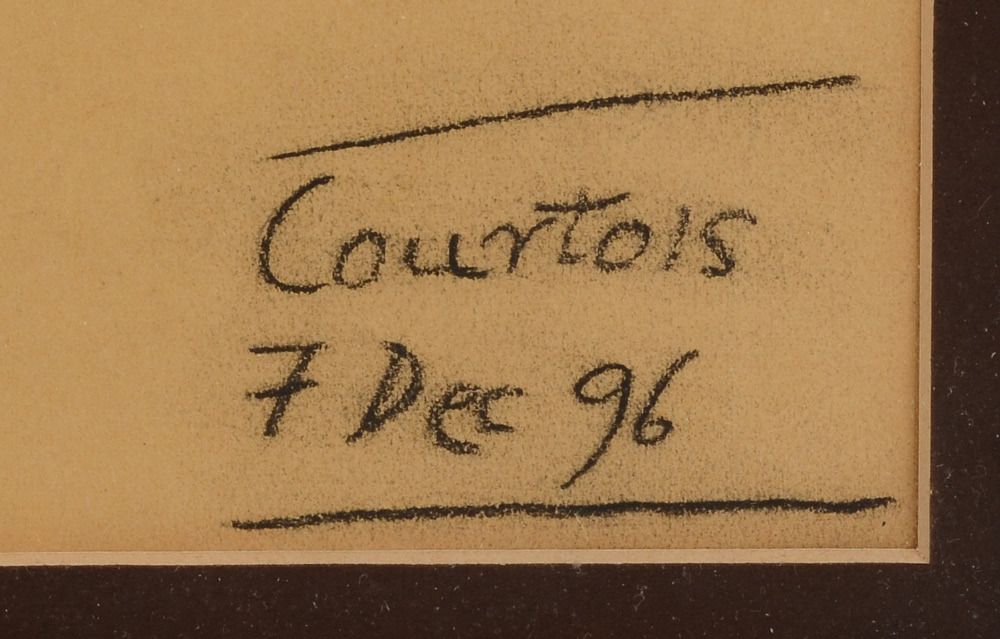 Courtois
7 Dec 96